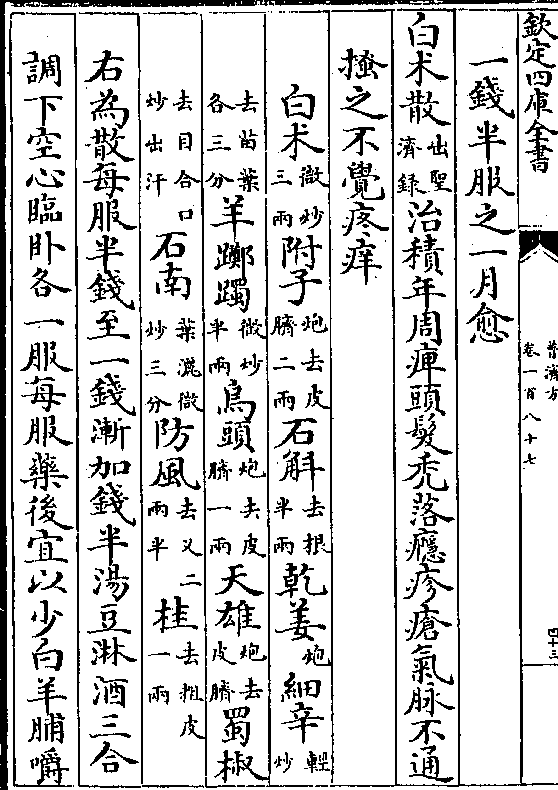 欽定四庫全書
普濟方
卷一百八十七
四十三
一錢半服之一月愈
白术散出聖濟錄治積年周痺頭髮禿落癮疹瘡氣脉不通
搔之不覺疼痒
白术微炒三兩附子炮去皮臍二兩石斛去根半兩乾姜炮細辛輕炒
去苗葉各三分羊躑躅微炒半兩烏頭炮去皮臍一兩天雄炮去皮臍蜀椒
去目合口炒出汗石南葉灑微炒三分防風去叉二兩半桂去粗皮一兩
右為散每服半錢至一錢漸加錢半湯豆淋酒三合
調下空心臨卧各一服每服藥後宜以少白羊脯嚼